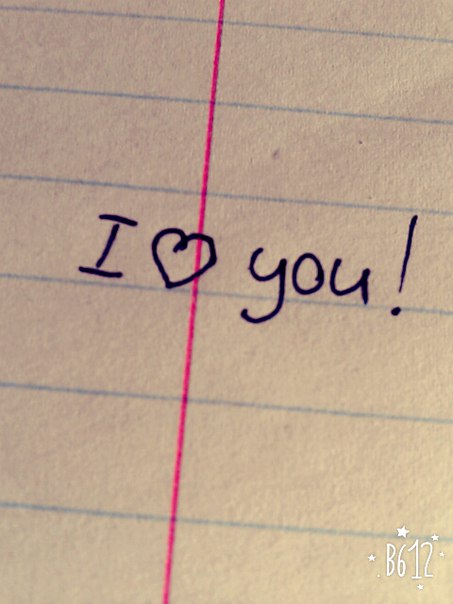 I ♡ you!
B612